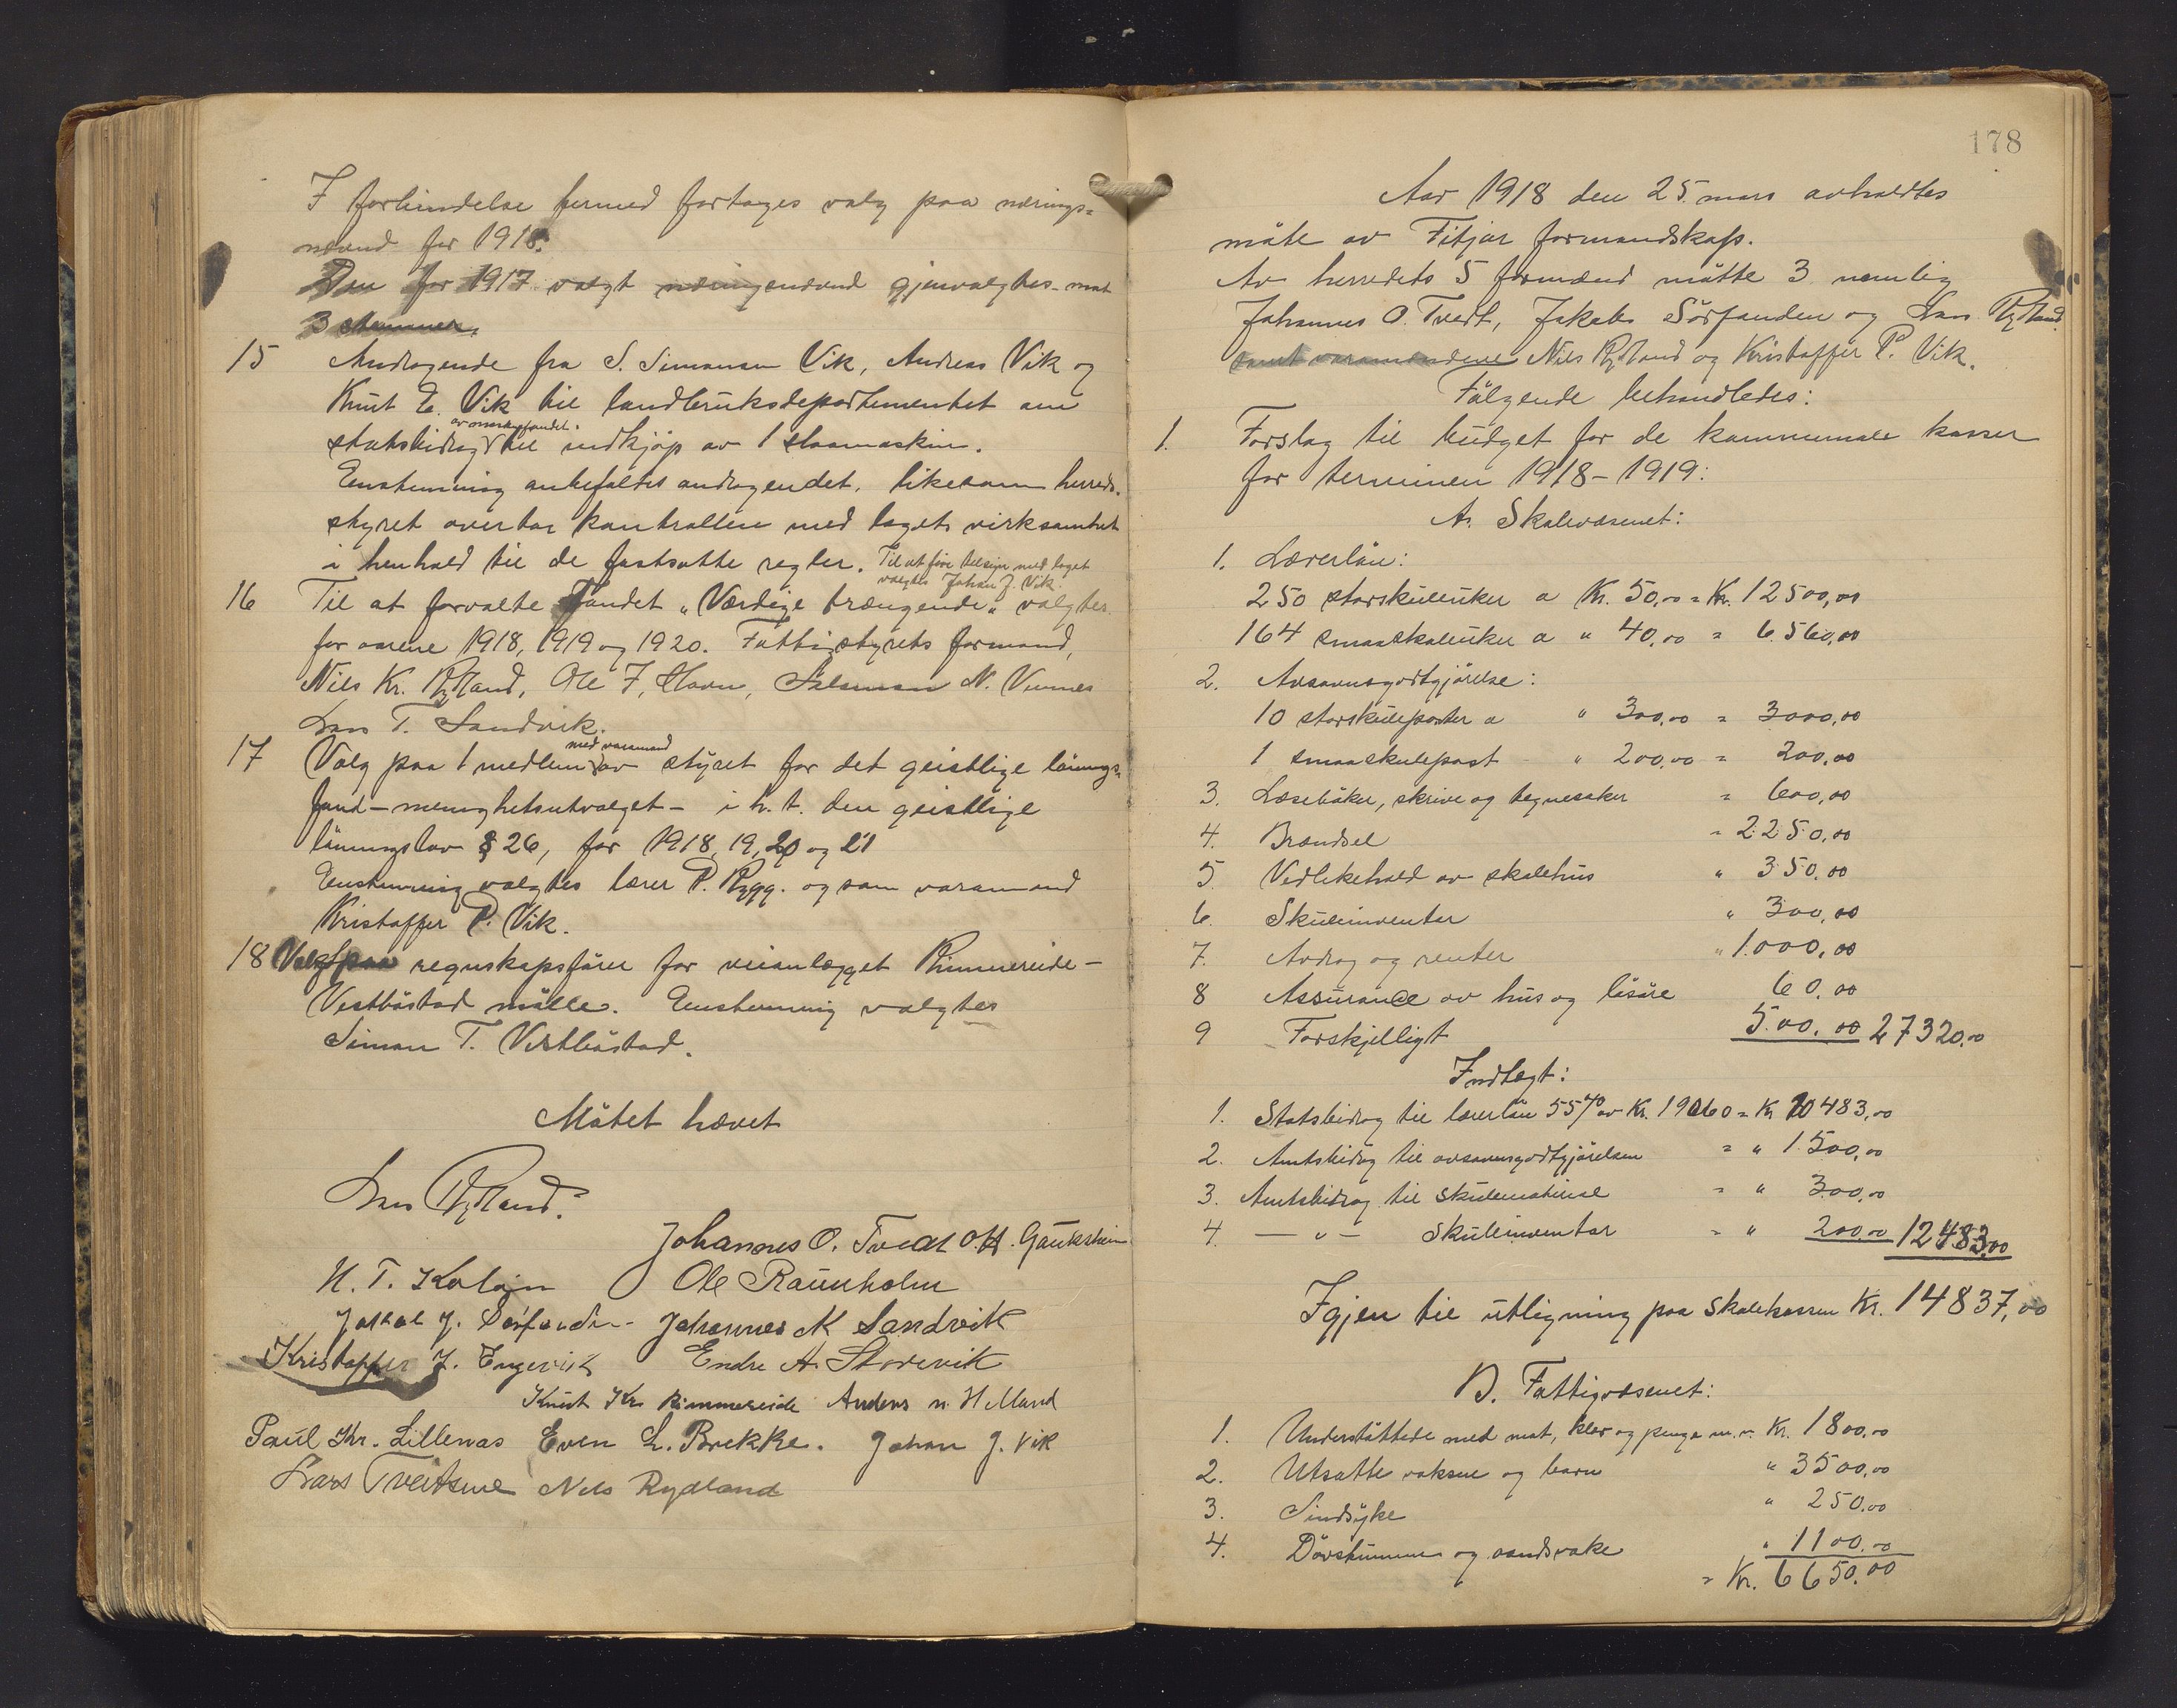 I forbindelse hermed fortages valg paa nærings-
nævnd for 1918.
Den for 1917 valgt næringsnævnd gjenvalgtes mot
3 stemmer.
15 Andragende fra S. Simonsen Vik, Andreas Vik og
Knut E. Vik til landbruksdepartementet om
statsbidrag til indkjøp av 1 slaamaskin.
Enstemmig anbefaltes andragendet, likesom herreds-
styret overtar kontrollen med lagets virksomhet
i henhold til de fastsatte regler. Til at føre tilsyn med laget
valgtes Johan J. Vik.
16 Til at forvalte Fondet „Værdige trængende" valgtes
for aarene 1918, 1919 og 1920. Fattigstyrets formand,
Nils Kr. Rydland, Ole J. Havn, Salamon N. Vinnes
Lars T. Sandvik.
17 Valg paa 1 medlem med varamand av styret for det geistlige lønnings-
fond – menighetsutvalget – i h. t. den geistlige
lønningslov § 26, for 1918, 19, 20 og 21
Enstemmig valgtes lærer P. Rygg. og som varamand
Kristoffer P. Vik.
18 Valg paa regnskapsfører for veianlægget Rimmereide –
Vestbøstad mølle. Enstemmig valgtes
Simon T. Vestbøstad.
Møtet hævet
Lars Rydland.
Johannes O. Tveit O. H. Gaukstein
N. T. Koløen Ole Raunholm
Jakob J. Sørfonden Johannes M Sandvik
Kristoffer J. Engevik Endre A. Storevik
Knut Kr. Rimmereide Anders N. Helland
Paul Kr. Lillenæs Even L. Brekke. Johan J. Vik
Lars Tveitene Nils Rydland
178
Aar 1918 den 25. mars avholdtes
møte av Fitjar formandskap.
Av herredets 5 formænd møtte 3 nemlig
Johannes O. Tveit, Jakob Sørfonden og Lars Rydland
samt varamændene Nils Rydland og Kristoffer P. Vik.
Følgende behandledes:
1. Forslag til budget for de kommunale kasser
for terminen 1918–1919:
A. Skolevæsenet:
1. Lærerløn:
250 storskuleuker a Kr. 50,00 = Kr. 12500,00
164 smaaskoleuker a " 40,00 = 6.560,00
2. Avsavnsgodtgjørelse:
10 storskuleposter a " 300,00 = 3000,00
1 smaaskulepost " 200,00 = 200,00
3. Læsebøker, skrive og tegnesaker = 600,00
4. Brændsel " 2250,00
5. Vedlikehold av skolehus " 350,00
6. Skuleinventar " 300,00
7. Avdrag og renter " 1.000,00
8 Assurance av hus og løsøre 60,00
9 Forskjelligt 500,00 27320,00
Indtægt:
1. Statsbidrag til lærerløn 55% av Kr. 19060 = Kr 10483,00
2. Amtsbidrag til avsavnsgodtgjørelsen = " 1500,00
3. Amtsbidrag til skulemateriel = " 300,00
4. — " — Skuleinventar = " 200,00 12483,00
Igjen til utligning paa skolekassen Kr. 14837,00
B. Fattigvæsenet:
1. Understøttede med mat, klær og penge m.v. Kr. 1800,00
2. Utsatte voksne og barn " 3500,00
3. Sindsyke " 250,00
4. Døvstumme og aandsvake " 1100,00
= Kr. 6650,00